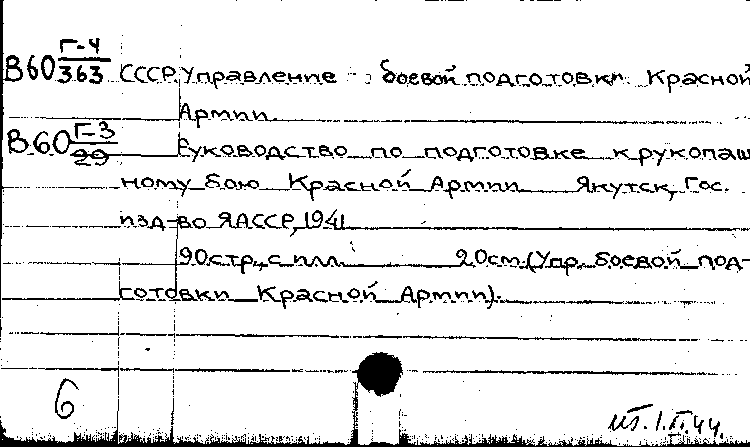 В60 Г-4/363 СССР. Управление боевой подготовки Красной
Армии.
В60 Г-3/29 Руководство по подготовке к рукопаш-
ному бою Красной Армии. Якутск, Гос.
изд-во ЯАССР, 1941.
90стр., с илл. 20см. (Упр. боевой под-
готовки Красной Армии).
6